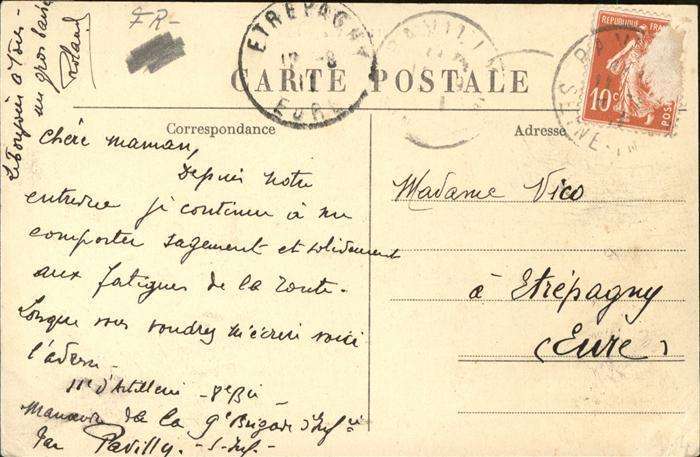 FR-
Le bonjour à tous
un gros baiser
Roland
ETREPAGNY
EURE
PAVILLY
CARTE POSTALE
REPUBLIQUE FRANÇAISE
10c
POSTES
PAVILLY
SEINE-INF
Correspondance
Adresse
Chère maman,
Depuis notre
entrevue je continue à me
comporter sagement et solidement
aux fatigues de la route.
Lorsque vous voudrez m'écrire voici
l'adresse
11e d'Artillerie - 7e Bie
Manœuvres de la 9e Brigade d'Infie
par Pavilly - S-Inf.
Madame Vico
à Etrépagny
(Eure)